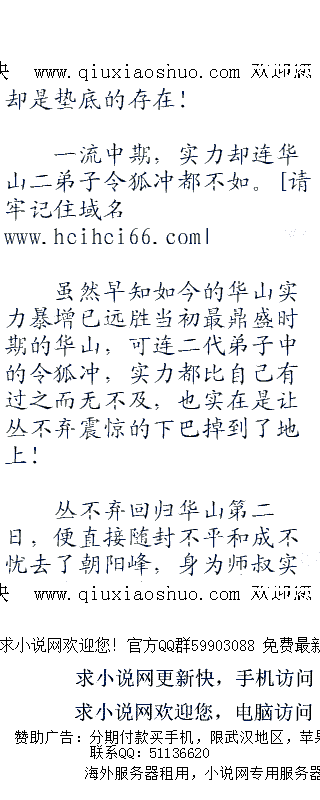 www.qiuxiaoshuo.com 欢迎您
却是垫底的存在！
一流中期，实力却连华
山二弟子令狐冲都不如。[请
牢记住域名
www.hcihci66.com|
虽然早知如今的华山实
力暴增已远胜当初最鼎盛时
期的华山，可连二代弟子中
的令狐冲，实力都比自己有
过之而无不及，也实在是让
丛不弃震惊的下巴掉到了地
上！
丛不弃回归华山第二
日，便直接随封不平和成不
忧去了朝阳峰，身为师叔实
www.qiuxiaoshuo.com 欢迎您
求小说网欢迎您！官方QQ群59903088 免费最新
求小说网更新快，手机访问
求小说网欢迎您，电脑访问
赞助广告：分期付款买手机，限武汉地区，苹果
联系QQ：51136620
海外服务器租用，小说网专用服务器